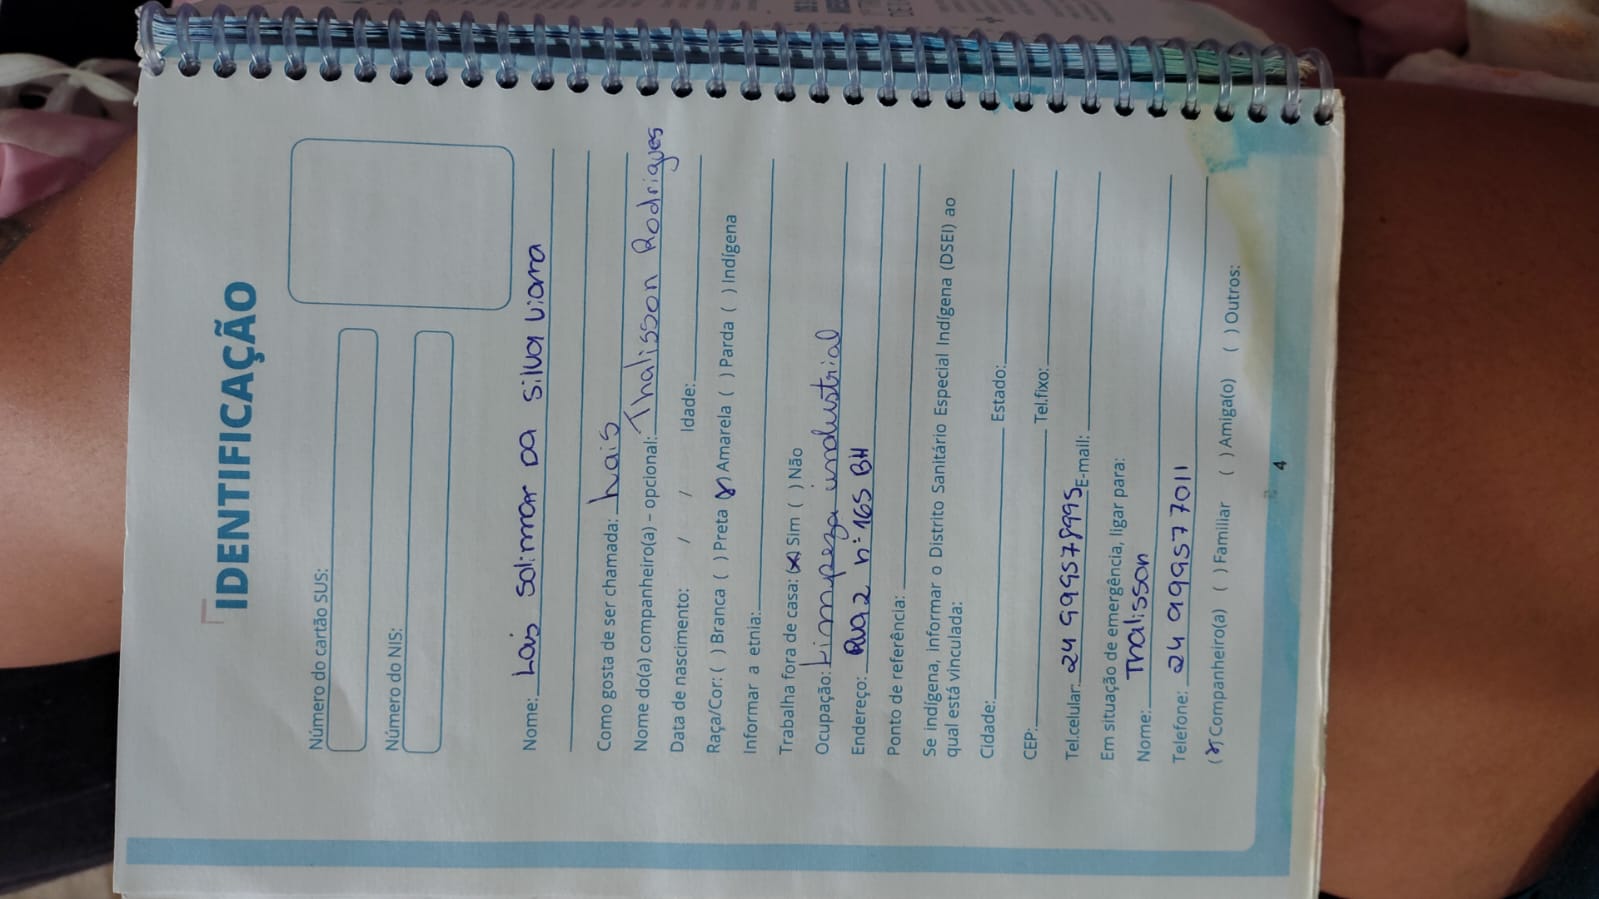 IDENTIFICAÇÃO
Número do cartão SUS:
Número do NIS:
Nome: Laís Solimar DA Silva Viana
Como gosta de ser chamada: Laís
Nome do(a) companheiro(a) – opcional: Thalisson Rodrigues
Data de nascimento: / / Idade:
Raça/Cor: ( ) Branca ( ) Preta (x) Amarela ( ) Parda ( ) Indígena
Informar a etnia:
Trabalha fora de casa: (x) Sim ( ) Não
Ocupação: Limpeza industrial
Endereço: Rua 2 n: 165 BH
Ponto de referência:
Se indígena, informar o Distrito Sanitário Especial Indígena (DSEI) ao
qual está vinculada:
Cidade: Estado:
CEP: Tel.fixo:
Tel.celular: 24 999578995 E-mail:
Em situação de emergência, ligar para:
Nome: Thalisson
Telefone: 24 999577011
(x) Companheiro(a) ( ) Familiar ( ) Amiga(o) ( ) Outros:
4